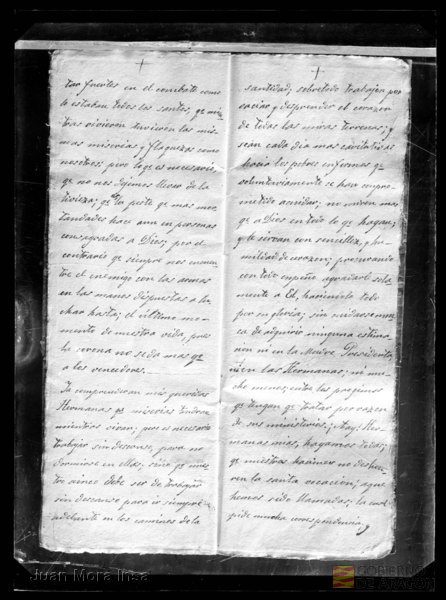 tar fuertes en el combate como
lo estaban todos los santos, qe mien
tras vivieron tuvieron las mis
mas miserias y flaquezas como
nosotros; pero lo qe es necesario,
qe no nos dejemos llevar de la
tivieza; qe la peste qe mas mor
tandades hace aun en personas
consagradas a Dios; por el
contrario qe siempre nos encuen
tre el enemigo con las armas
en las manos dispuestas a lu
char hasta; el ultimo mo
mento de nuestra vida, pues
la corona no se da mas qe
a los vencedores.
Ya comprenderan mis queridas
Hermanas qe miserias tendran
mientras vivan; por es necesario
trabajar sin descanso, para no
dormirse en ellas, sino qe nues
tro ainco debe ser de trabajar
sin descanso para ir siempre
adelante en los caminos de la
santidad; sobretodo trabajen por
vaciar y desprender el corazon
de todas las miras terrenas; y
sean cada dia mas caritativas
hacia los pobres enfermos qe
voluntariamente se han compro
metido a cuidar; no miren mas
qe a Dios en todo lo qe hagan;
y le sirvan con sencillez, y hu
mildad de corazon; procurando
con todo empeño agradarle sola
mente a El, haciendolo todo
por su gloria; sin cuidarse nun
ca de adquirir ninguna estima
cion ni en la Madre Presidenta,
ni en las Hermanas; ni mu
cho menos, entre los progimos
qe tengan qe tratar por razon
de sus ministerios; ¡Hay! Her
manas mias, hagamos todas;
qe nuestras acciones no desdi
en la santa vocacion; a que
hemos sido llamadas; la cual
pide mucha correspondencia, y
Juan Mora Insa
GOBIERNO
DE ARAGON